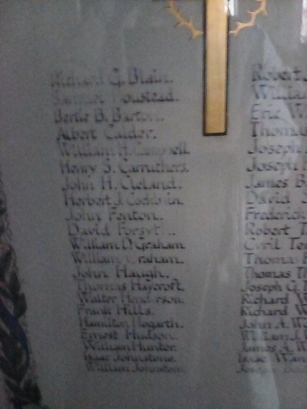 Richard G. Blain.
Samuel Boustead.
Bertie B. Barton.
Albert Calder.
William H. Campbell
Henry S. Carruthers.
John H. Cleland.
Herbert J. Cochrain
John Fenton.
David Forsyt
William D. Graham.
William Graham.
John Haugh.
Thomas Haycroft.
Walter Henderson.
Frank Hills.
Hamilton Hogarth.
Ernest Hudson.
William Hunter.
Isaac Johnstone.
William Johnston.
Robert
Willia
Eric W
Thoma
Joseph
Joseph
James B
David S
Frederic
Robert T
Cyril Te
Thoma
Thomas T
Joseph G. T
Richard
Richard W
John A. W
William J.
James A. W
Isaac Wan
Joseph